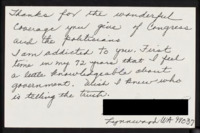 Thanks for the wonderful
coverage you give of Congress
and the politicians
I am addicted to you. First
time in my 72 years that I feel
a little knowledgeable about
government. Wish I knew who
is telling the truth.
Lynnwood, WA 98037